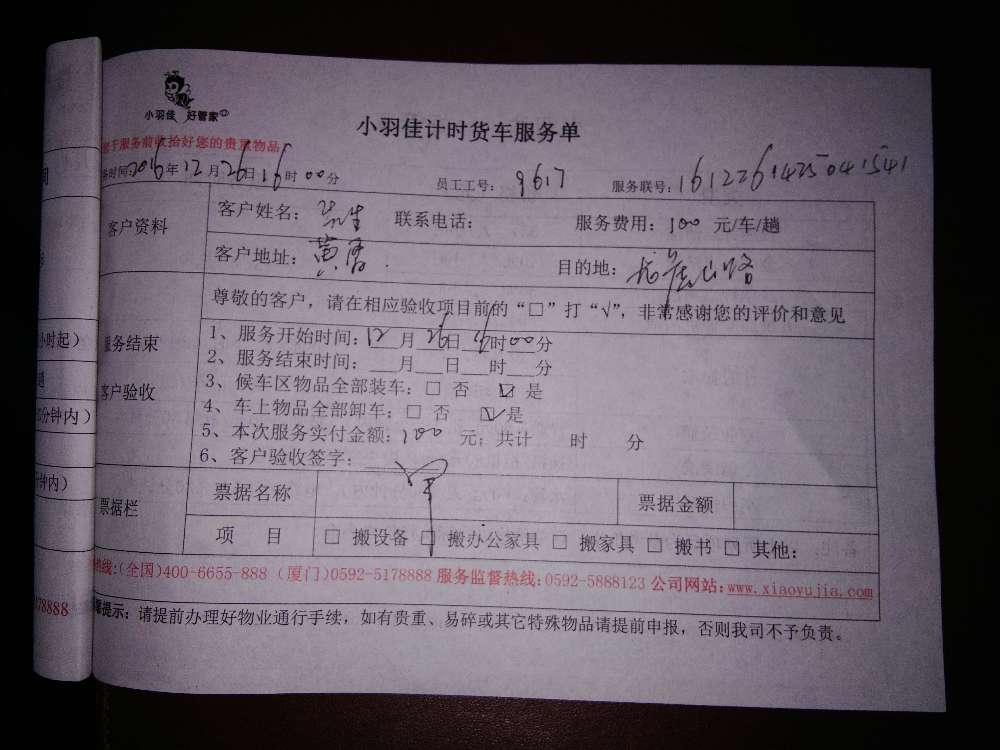 小羽佳 好管家
小羽佳计时货车服务单
于服务前收拾好您的贵重物品
务时间:2016年12月26日16时00分 员工工号: 9617 服务联号:
客户资料
客户姓名: 联系电话: 服务费用: 100 元/车/趟
客户地址: 黄厝 目的地: 山路
服务结束
客户验收
尊敬的客户，请在相应验收项目前的“□”打“√”，非常感谢您的评价和意见
1、服务开始时间: 12月26日16时00分
2、服务结束时间: 月 日 时 分
3、候车区物品全部装车: □ 否 ☑ 是
4、车上物品全部卸车: □ 否 ☑ 是
5、本次服务实付金额: 100 元; 共计 时 分
6、客户验收签字:
票据栏
票据名称 票据金额
项 目 □ 搬设备 □ 搬办公家具 □ 搬家具 □ 搬书 □ 其他:
热线:(全国)400-6655-888 (厦门)0592-5178888 服务监督热线:0592-5888123 公司网站:www.xiaoyujia.com
提示: 请提前办理好物业通行手续，如有贵重、易碎或其它特殊物品请提前申报，否则我司不予负责。
小时起)
分钟内)
分钟内)
178888